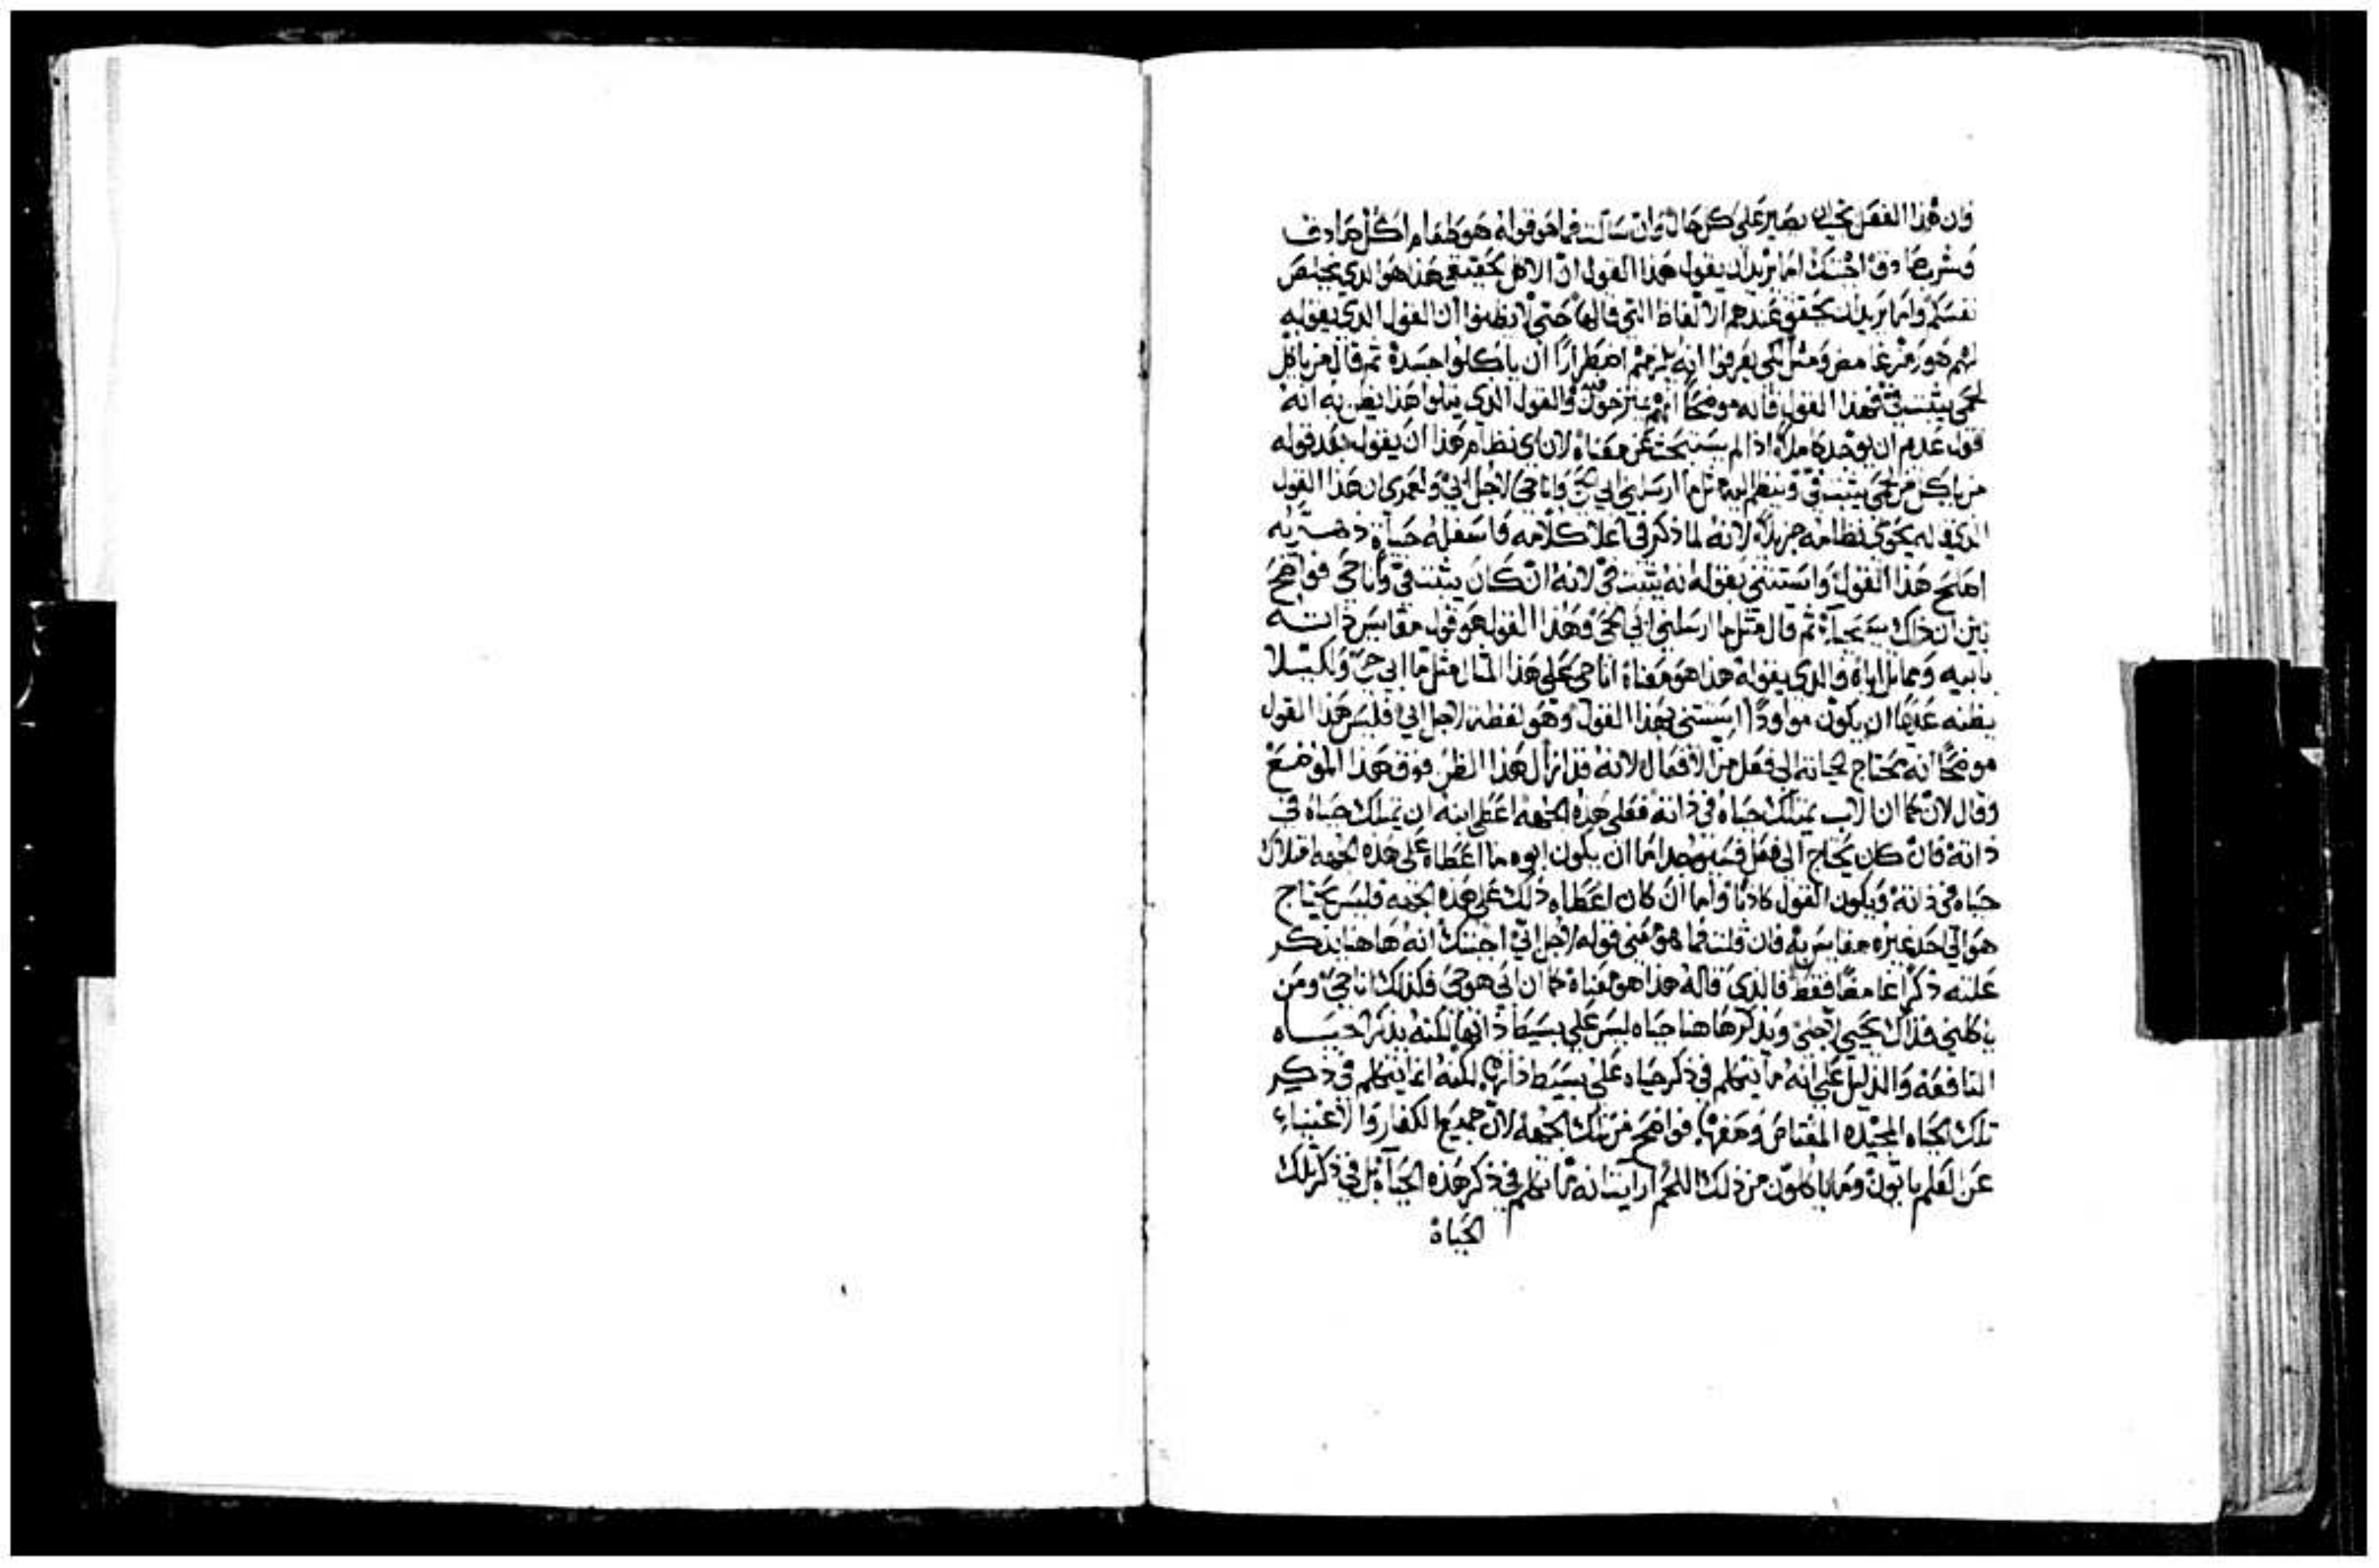 وان هذا الفعل يجب ان يصير على كل حال وان سالت فما هو قوله هو طعام اكل صادق
وشرب صادق اجبتك اما يريد ان يقول هذا القول ان الاكل الحقيقي هذا هو الذي يخلص
نفسكم واما يريد ان يحقق عندهم الالفاظ التي قالها حتى لا يظنوا ان القول الذي يقوله
لهم هو رمز غامض ومثل لكي يعرفوا انه يلزمهم اضطرارا ان ياكلوا جسده ثم قال من ياكل
لحمي يثبت في فهذا القول قاله موضحا انهم يمتزجون فيه والقول الذي يتلوا هذا يظن به انه
قول عدم ان يوجد ملاه اذا لم يستبحث عن معناه لان اي نظام هذا ان يقول بعد قوله
من ياكل من لحمي يثبت في وينظم اليه مثل ما ارسلني ابي الحي وانا حي لاجل ابي ولعمري ان هذا القول
الذي قاله يحوي نظامه جزيلا لانه لما ذكر في اعلا كلامه واسفله حياة دهرية
اصلح هذا القول واستثنى بقوله انه يثبت في لانه ان كان يثبت في وانا حي فواضح
بين ان ذاك سيحيا ثم قال مثل ما ارسلني ابي الحي وهذا القول هو قول مقايس ذاته
بابيه ومماثل اياه والذي يقوله هذا هو معناه انا حي على هذا المثال مثل ما ابي حي ولكيلا
يظنه عديما ان يكون مولودا استثنى بهذا القول وهو لفظة لاجل ابي فليس هذا القول
موضحا انه يحتاج لحياته الى فعل من الافعال لانه قد ازال هذا الظن فوق هذا الموضع
وقال لان كما ان الاب يمتلك حياه في ذاته فعلى هذه الجهه اعطى ابنه ان يمتلك حياه في
ذاته فان كان يحتاج الى فعل فسيوجد اما ان يكون ابوه ما اعطاه على هذه الجهه امتلاك
حياه في ذاته ويكون القول كاذبا واما ان كان اعطاه ذلك على هذه الجهه فليس يحتاج
هو الى احد غيره مقايس به فان قلت فما هو معنى قوله لاجل ابي اجبتك انه هاهنا يذكر
علته ذكرا غامضا فقط فالذي قاله هذا هو معناه كما ان ابي هو حي فكذلك انا حي ومن
ياكلني فذاك يحيى لاجلي ويذكر هاهنا حياه ليس على بسيط ذاتها لكنه يذكر الحياه
النافعه والدليل على انه ما يتكلم في ذكر حياه على بسيط ذاتها لكنه انما يتكلم في ذكر
تلك الحياه المجيده المعتاص وصفها فواضح من تلك الجهه لان جميع الكفار والاغبياء
عن العلم ياتون وما ياكلون من ذلك اللحم ارايت انه ما يتكلم في ذكر هذه الحياه بل في ذكر تلك
الحياة